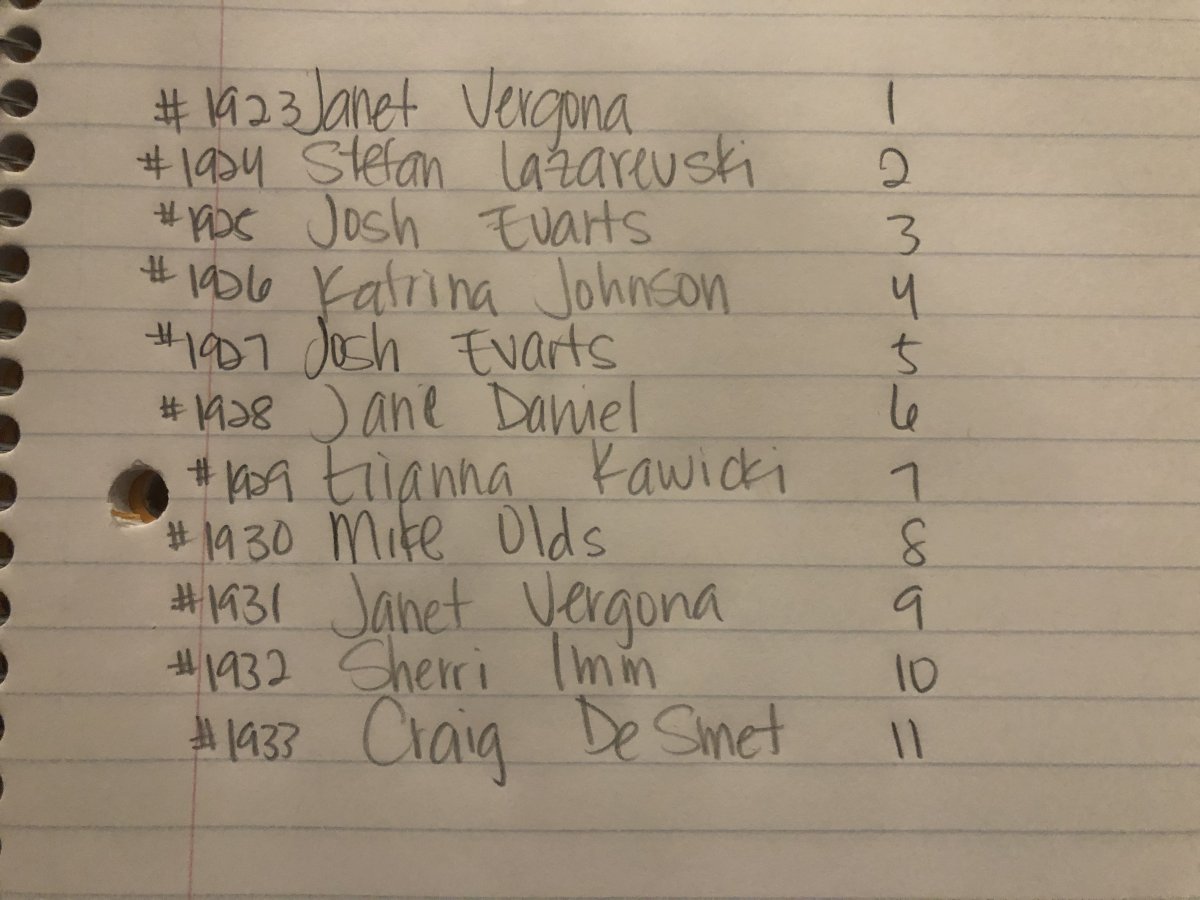 #1923 Janet Vergona 1
#1924 Stefan Lazarevski 2
#1925 Josh Evarts 3
#1926 Katrina Johnson 4
#1927 Josh Evarts 5
#1928 Jane Daniel 6
#1929 Kawicki 7
#1930 Mike Olds 8
#1931 Janet Vergona 9
#1932 Sherri Imm 10
#1933 Craig DeSmet 11